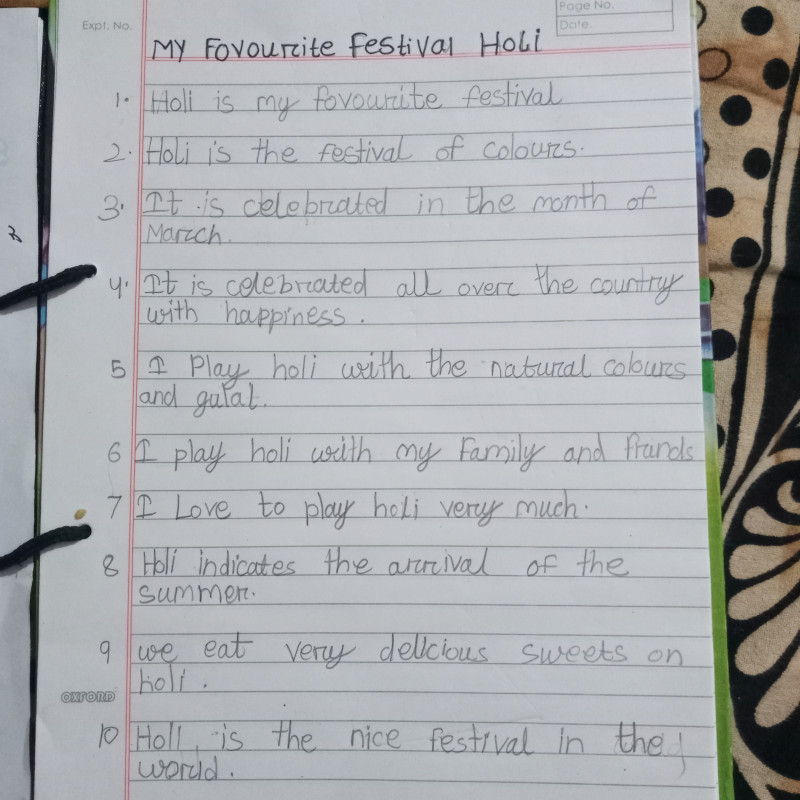 Page No.
Expt. No.
Date.
MY Fovourite Festival Holi
1. Holi is my fovourite festival
2. Holi is the festival of colours.
3. It is celebrated in the month of
March.
4. It is celebrated all over the country
with happiness.
5 I Play holi with the natural colours
and gulal.
6 I play holi with my Family and frands
7 I Love to play holi very much.
8 Holi indicates the arrival of the
summer.
9 we eat very delicious sweets on
holi.
OXFORD
10 Holi is the nice festival in the
world.